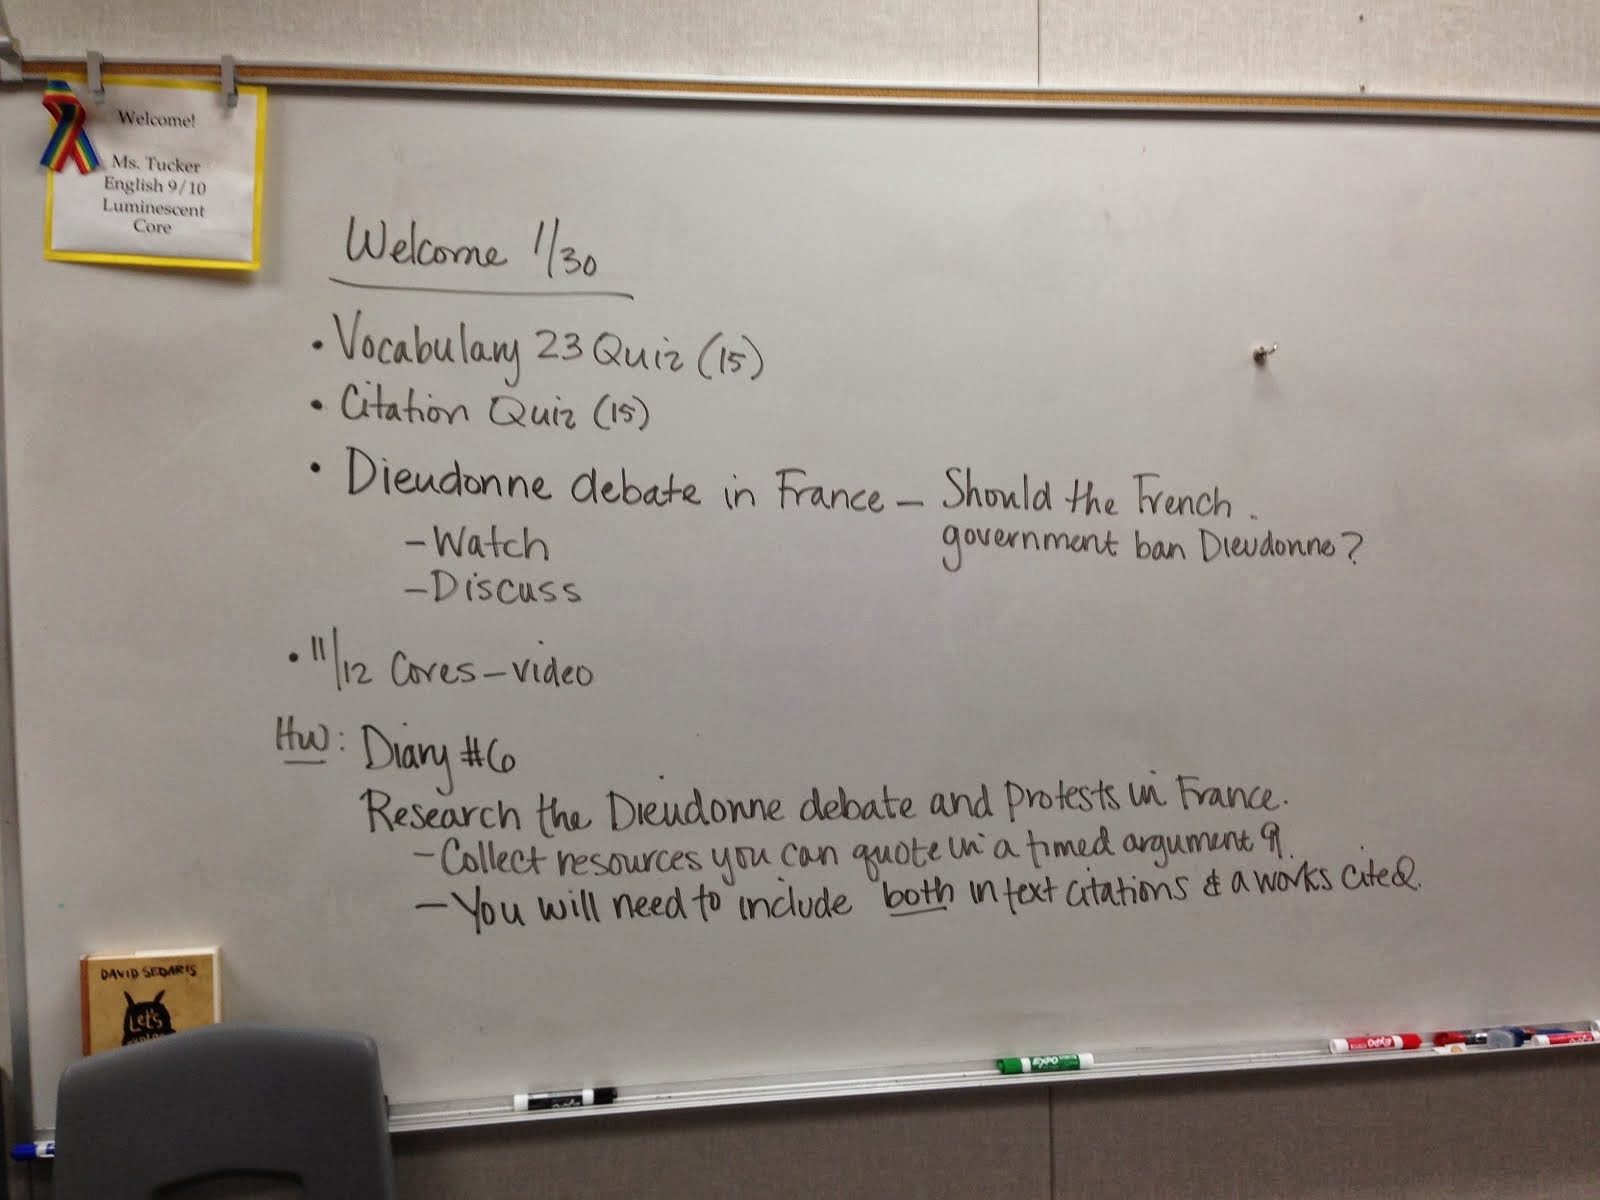 Welcome!
Ms. Tucker
English 9/10
Luminescent
Core
Welcome 1/30
• Vocabulary 23 Quiz (15)
• Citation Quiz (15)
• Dieudonne debate in France – Should the French
government ban Dieudonne?
– Watch
– Discuss
• 11/12 Cores – video
HW: Diary #6
Research the Dieudonne debate and protests in France.
– Collect resources you can quote in a timed argument ¶.
– You will need to include both in text citations & a works cited.
DAVID SEDARIS
Let's
EXPO
EXPO